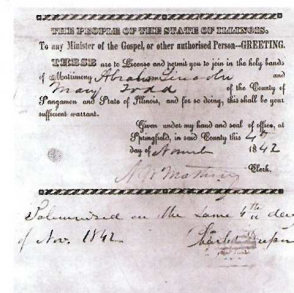 THE PEOPLE OF THE STATE OF ILLINOIS.
To any Minister of the Gospel, or other authorised Person—GREETING.
THESE are to License and permit you to join in the holy bands
of Matrimony Abraham Lincoln and
Mary Todd of the County of
Sangamon and State of Illinois, and for so doing, this shall be your
sufficient warrant.
Given under my hand and seal of office, at
Springfield, in said County this 4th
day of 1842
N. W. Matheny Clerk.
Solemnized on the same 4th day
of Nov. 1842 Charles